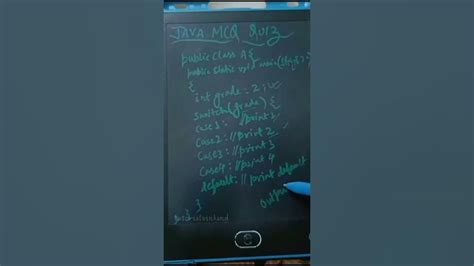 JAVA MCQ QUIZ
public class A {
public static void main(
{
int grade = 2;
switch(grade) {
case1: //print 1
Case2: //print 2
Case3: //print 3
Case4: //print 4
default: //print default
} }